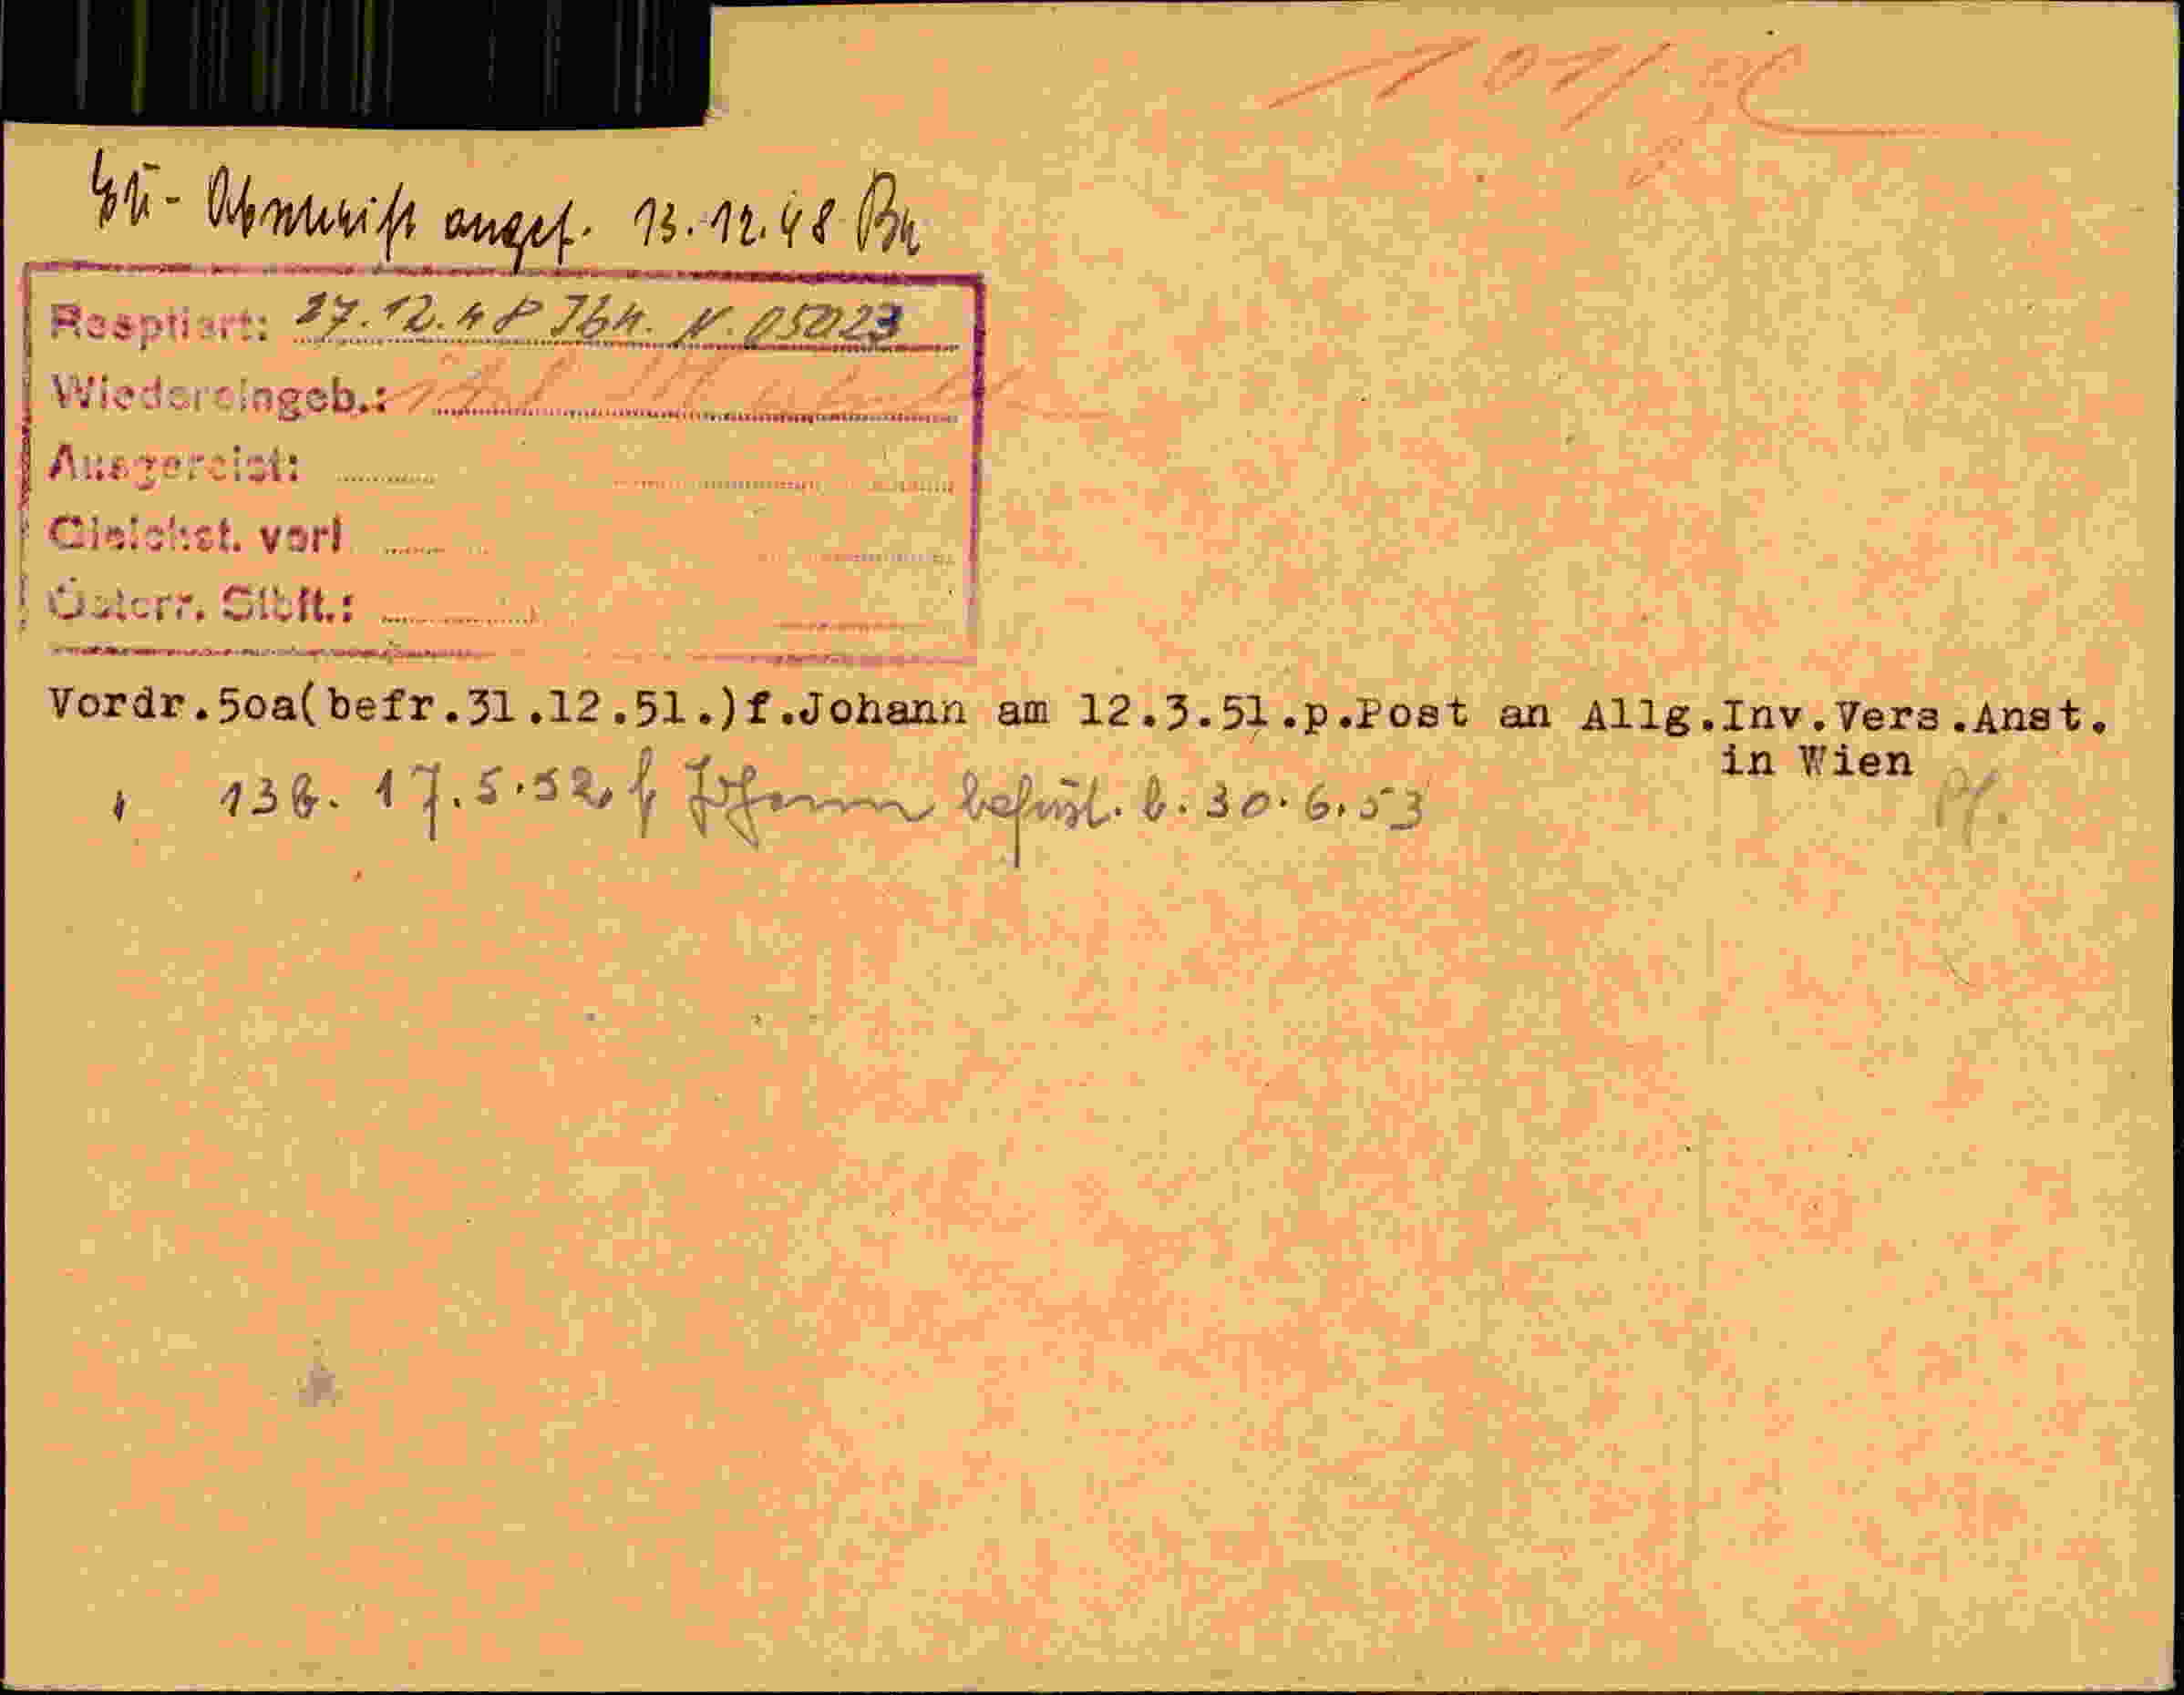 Abschrift angef. 13.12.48
Resptiert: 27.12.48 Jbh. N. 05023
Wiedereingeb.:
Ausgereist:
Gleichst. verl
Österr. Stbft.:
Vordr.50a(befr.31.12.51.)f.Johann am 12.3.51.p.Post an Allg.Inv.Vers.Anst.
in Wien
" 13b. 17.5.52. f. Johann befrist. b. 30.6.53